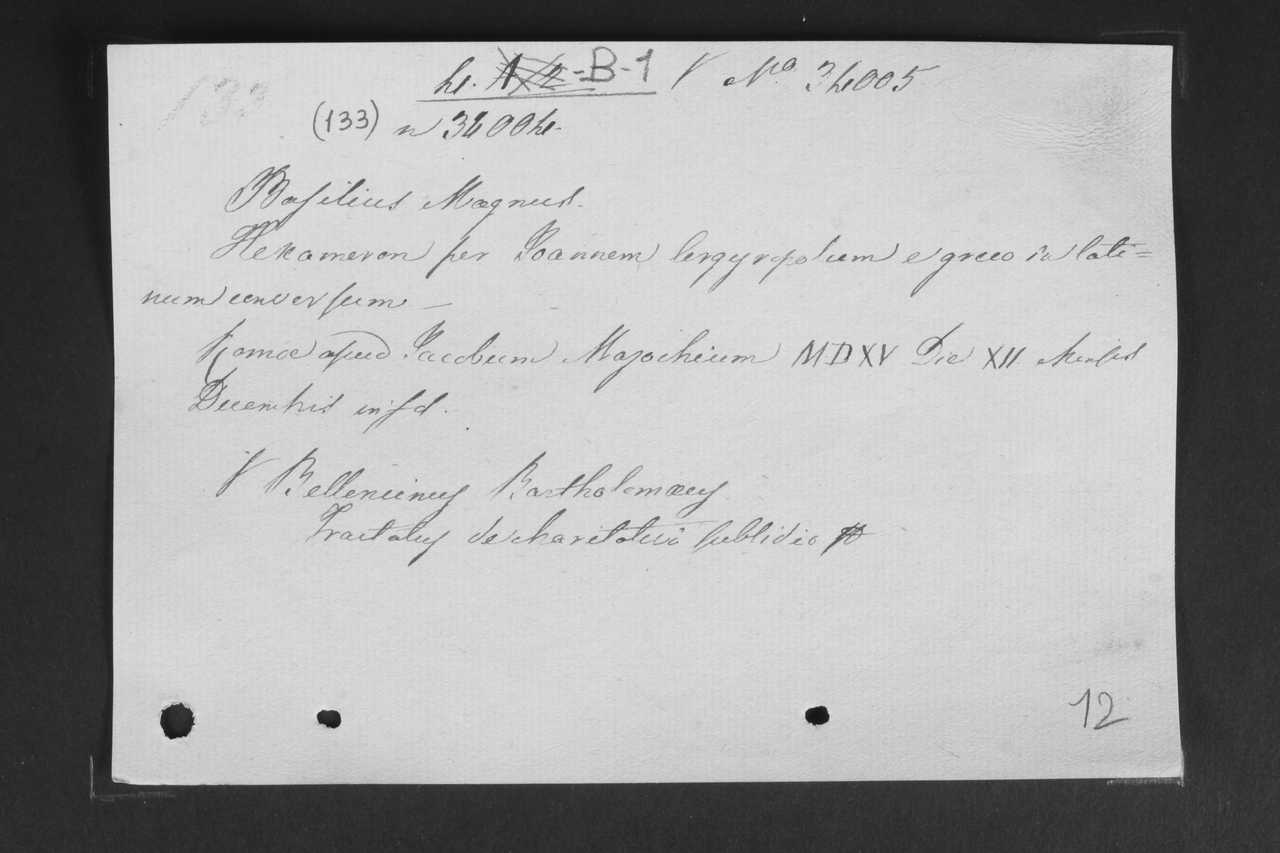 133
h. 1 2 - B - 1 V Nº 34005
(133) n 34004.
Basilius Magnus.
Hexameron per Joannem Argyropolum e greco in lati=
num conversum —
Romae apud Jacobum Mazochium MDXV Die XII Mensis
Decembris in fol.
V Bellencinus Bartholomaeus
Tractatus de charitativo subsidio
12